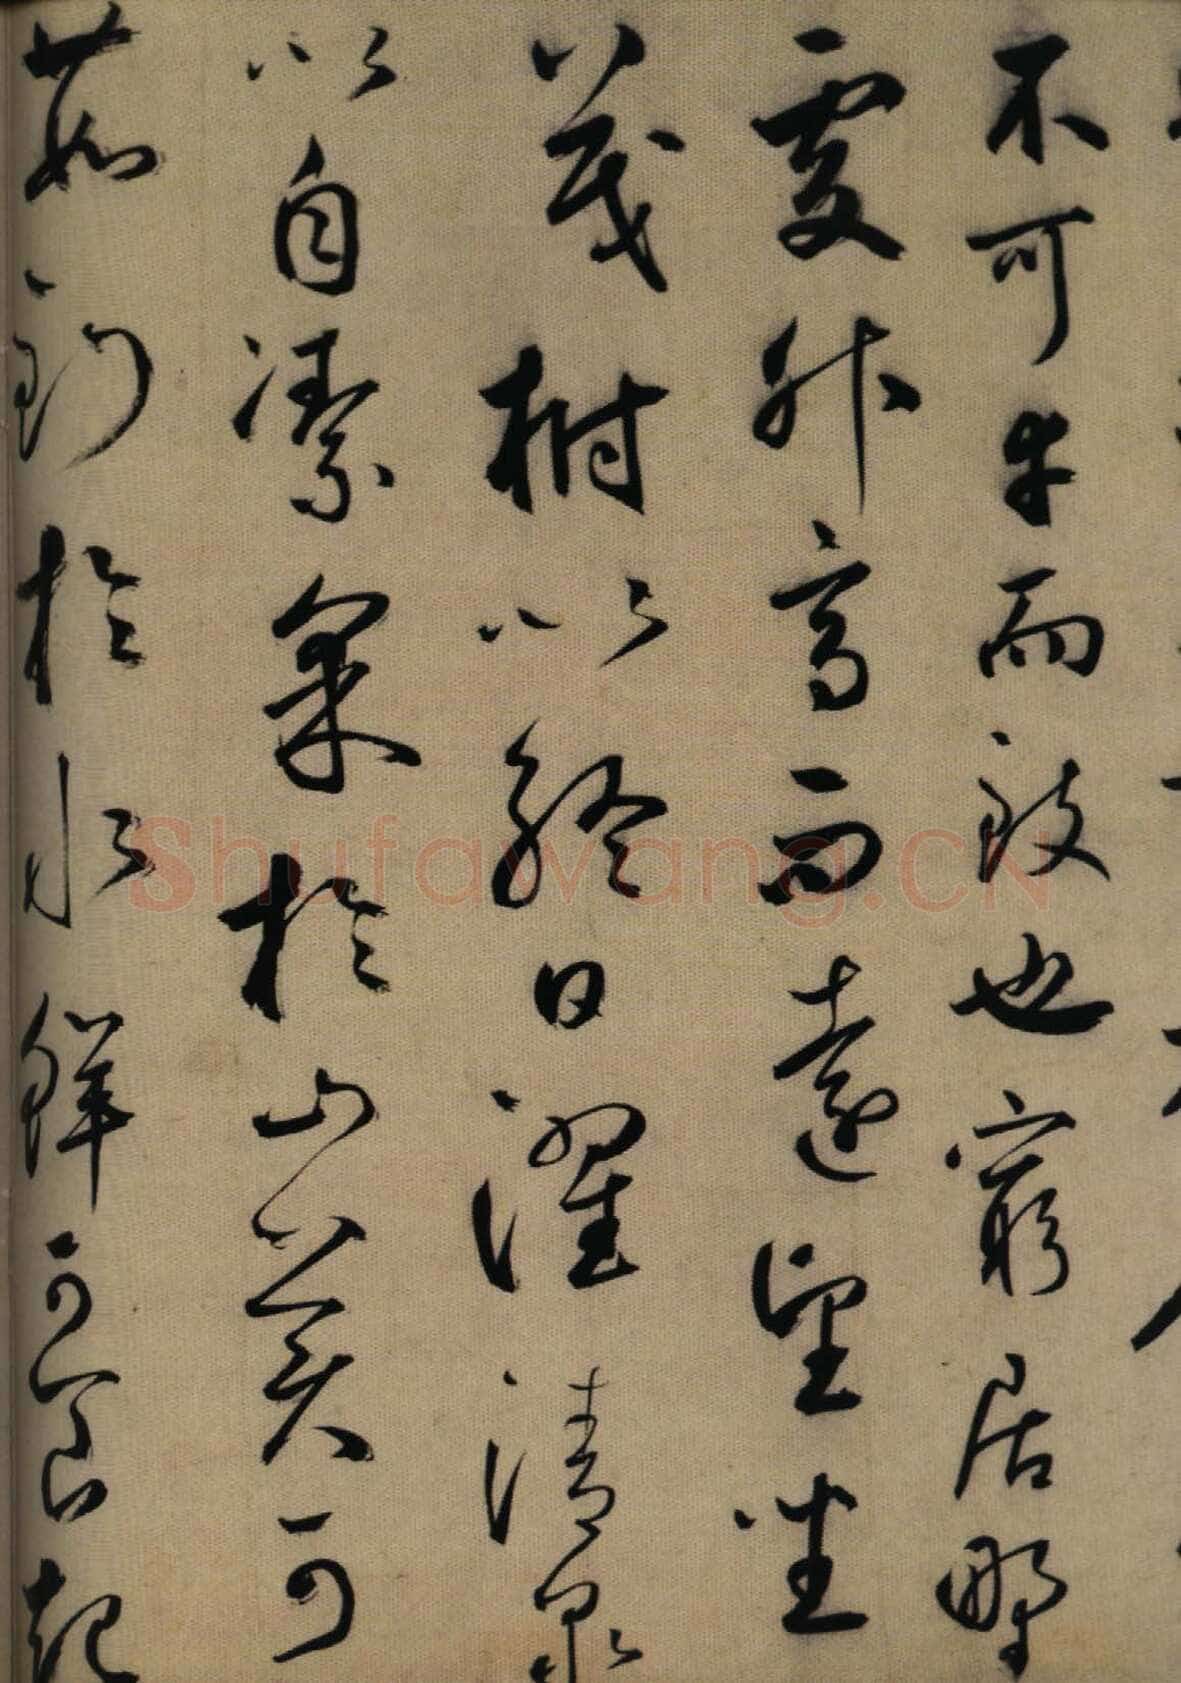 不可幸而致也窮居野
處升高而遠望坐
茂樹以終日濯清泉
以自潔采於山美可
茹釣於水鮮可食起
Shufawang.CN